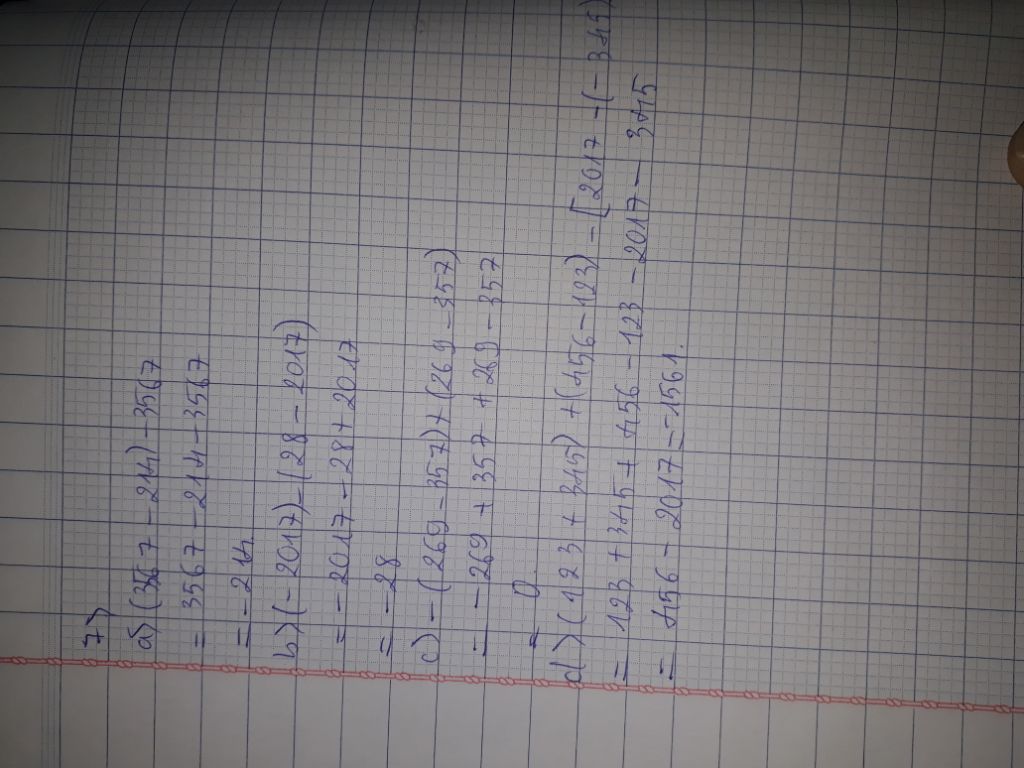 7)
a) (3567 - 214) - 3567
= 3567 - 214 - 3567
= - 214.
b) (- 2017) - (28 - 2017)
= - 2017 - 28 + 2017
= - 28
c) - (269 - 357) + (269 - 357)
= - 269 + 357 + 269 - 357
= 0.
d) (123 + 345) + (456 - 123) - [2017 - (- 345)
= 123 + 345 + 456 - 123 - 2017 - 345
= 456 - 2017 = -1561.